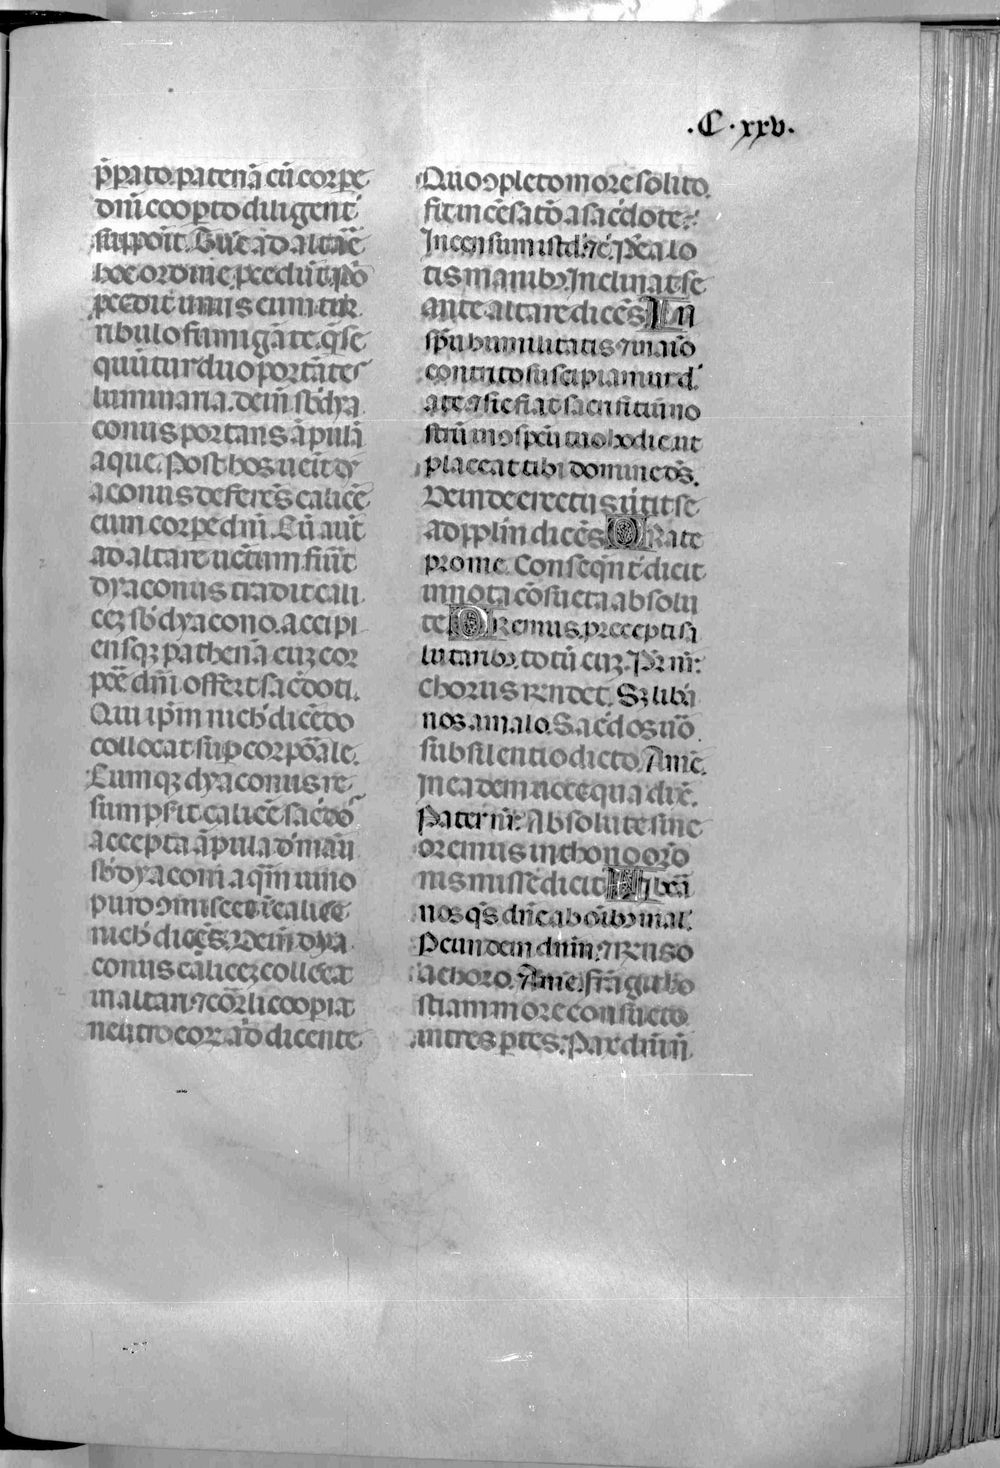 .C.xxv.
p̄parato. patenā cū corpore
dn̄i cooꝑto diligent̄
suppōit. Sicq̄ ad altare
hoc ordine ꝓcedūt. p̄o
ꝓcedit unus cum turi
ribulo fumigāte. q̄ se
quūtur duo portātes
luminaria. dein̄ sb̄dya
conus portans āpulā
aque. Post hos ueit dy
aconus deferēs calicē
cum corꝑe dn̄i. Cū aut̄
ad altare uētum fūit
dyaconus tradit cali
ceꝫ sb̄dyacono. accipi
ensqꝫ pathenā cuꝫ cor
poꝛe dn̄i offert sac̄doti.
Qui ip̄m nich̄ dicēdo
collocat suꝑ corporāle.
Cumqꝫ dyaconus re
sumpsit calicē sac̄dōs
accepta āpula d̄ manu
sb̄dyaconi aq̄m uino
puro ꝯmiscet ī calice
nich̄ dicēs. Dein̄ dya
conus caliceꝫ collocat
in altari ⁊ coꝛp̄li coopit
neutro eoꝝ ad dicente
Quo ꝯpleto more solito.
fit incēsatō a sac̄dote.
Incensum istd̄. ⁊c̄. P̄ea lo
tis manibꝫ. Inclinat se
ante altare dicēs In
sp̄u humilitatis ⁊ in aīo
contrito suscipiamur d̄
a te ⁊ sic fiat sacrificiū no
strū in ꝯspectu tuo hodie ut
placeat tibi domine d̄s.
Deinde erectus uertit se
ad ppl̄m dicēs Orate
pro me. Conseq̄nt̄ dicit
in nota cōsueta absolu
te Oremus. preceptis sa
lutaribꝫ. totū cuꝫ. Pr̄ nr̄:
chorus rn̄det. Sꝫ liba
nos a malo. Sac̄dos uō
sub silentio dicto. Amē.
In eadem uoce qua dix̄.
Pater nr̄. Absolute sine
oremus in thono orō
nis misse dicit Libera
nos q̄s dn̄e ab oībꝫ mal̄.
Peundem dnm̄. ⁊ rn̄so
a choro. Amē. frāgit ho
stiam more consueto
in tres ꝑtes. Pax dn̄i